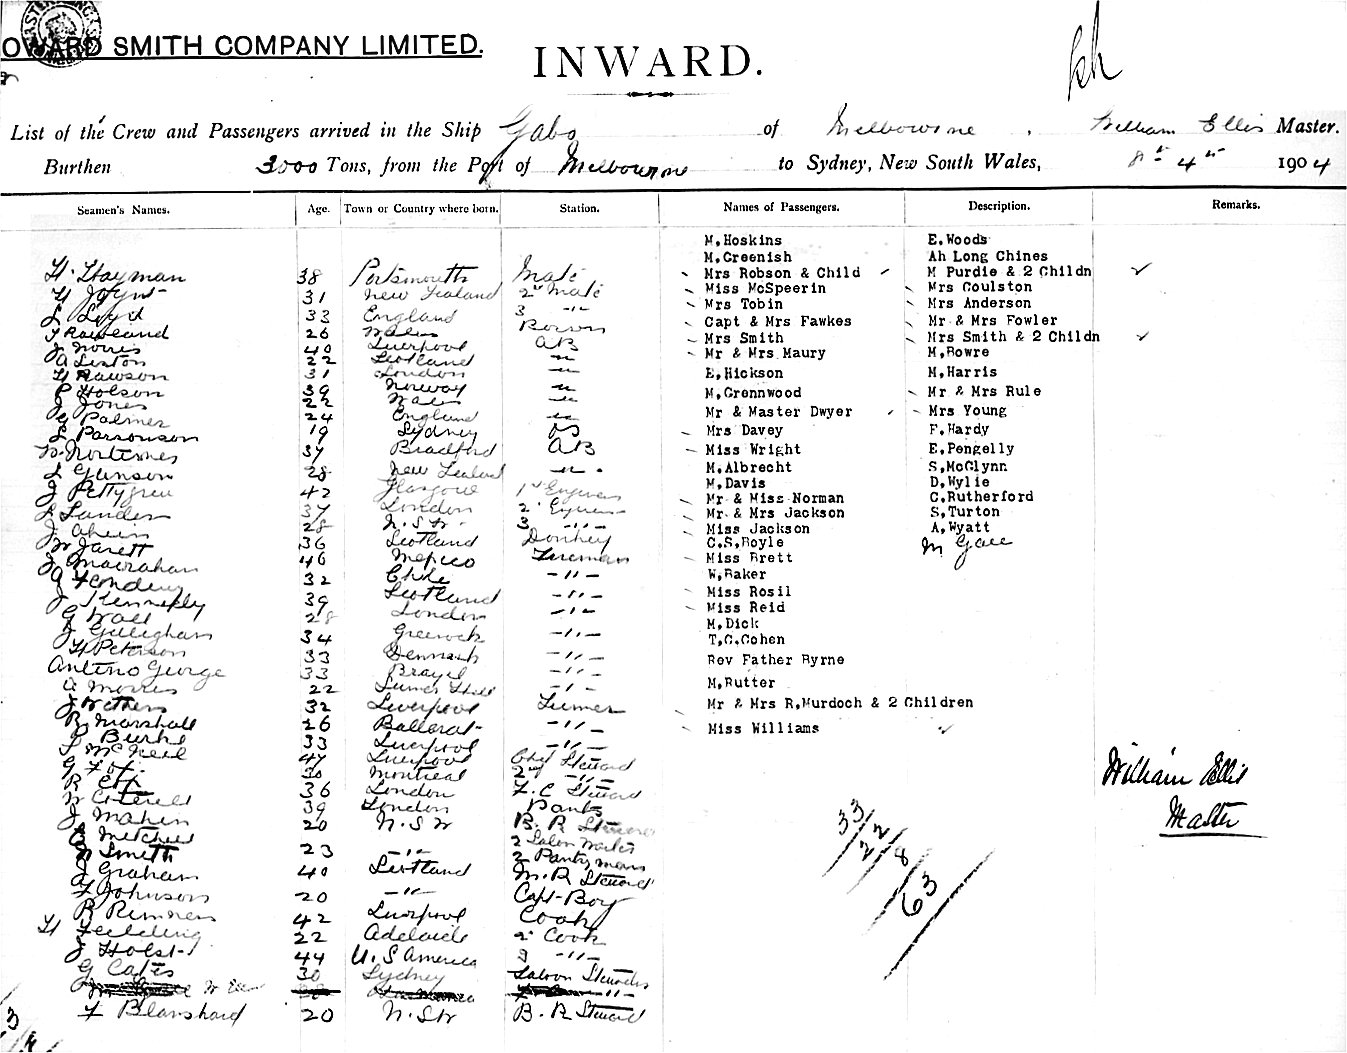 OWARD SMITH COMPANY LIMITED.
INWARD.
List of the Crew and Passengers arrived in the Ship Gabo of Melbourne, William Ellis Master.
Burthen 3000 Tons, from the Port of Melbourne to Sydney, New South Wales, 8th 4th 1904
Seamen's Names. Age. Town or Country where born. Station. Names of Passengers. Description. Remarks.
H. Hayman 38 Portsmouth Mate
H Joynt 31 New Zealand 2nd Mate
L Loyd 33 England 3 -"-
T Rowland 26 Wales
J Norris 40 Liverpool AB
A Linton 22 Scotland -"-
H Rawson 31 London -"-
P Holson 39 Norway -"-
J Jones 22 Wales -"-
G Palmer 24 England -"-
L Parsonson 19 Sydney OS
W. Mortimes 37 Bradford AB
28 New Zealand -"-
J Pettygrew 42 Glasgow 1st
L Landen 37 London 2
J Ahern 28 N.S.W. 3 -"-
W Jarett 36 Scotland Donkey
40 Mexico Firemen
32 Chile -"-
J Kennedy 39 Scotland -"-
G Wall 28 London -"-
J Gallighan 34 Greenock -"-
H Peterson 33 Denmark -"-
Antino George 33 Brazil -"-
A Morris 22 -"-
J Withers 32 Liverpool Trimer
R Marshall 26 Ballarat -"-
Burke 33 Liverpool -"-
McNeil 47 Liverpool Chf Steward
G Fox 30 Montreal 2nd -"-
R 36 London F.C Steward
W Coterell 39 London Pantry
J Maher 20 N.S.W B.R Steward
Mitchell 2 Saloon
Smith 23 -"- 2 Pantry man
J Graham 40 Scotland M.R Steward
F Johnson 20 -"- Capt Boy
R Rimmers 42 Liverpool Cook
H Feilding 22 Adelaide 2 Cook
J Holst 44 U.S America 3 -"-
G Cates 30 Sydney Saloon Stewards
W Ellis
F Blanshard 20 N.S.W B.R Steward
M.Hoskins E.Woods
M.Greenish Ah Long Chines
Mrs Robson & Child M Purdie & 2 Childn
Miss McSpeerin Mrs Coulston
Mrs Tobin Mrs Anderson
Capt & Mrs Fawkes Mr & Mrs Fowler
Mrs Smith Mrs Smith & 2 Childn
Mr & Mrs Maury M.Rowre
E.Hickson M.Harris
M.Grennwood Mr & Mrs Rule
Mr & Master Dwyer Mrs Young
Mrs Davey F.Hardy
Miss Wright E.Pengelly
M.Albrecht S.McGlynn
M.Davis D.Wylie
Mr & Miss Norman C.Rutherford
Mr & Mrs Jackson S.Turton
Miss Jackson A.Wyatt
C.S.Boyle M Gale
Miss Brett
W.Baker
Miss Rosil
Miss Reid
M.Dick
T.C.Cohen
Rev Father Byrne
M.Rutter
Mr & Mrs R.Murdoch & 2 Children
Miss Williams
William Ellis
Master
33/22/8/63